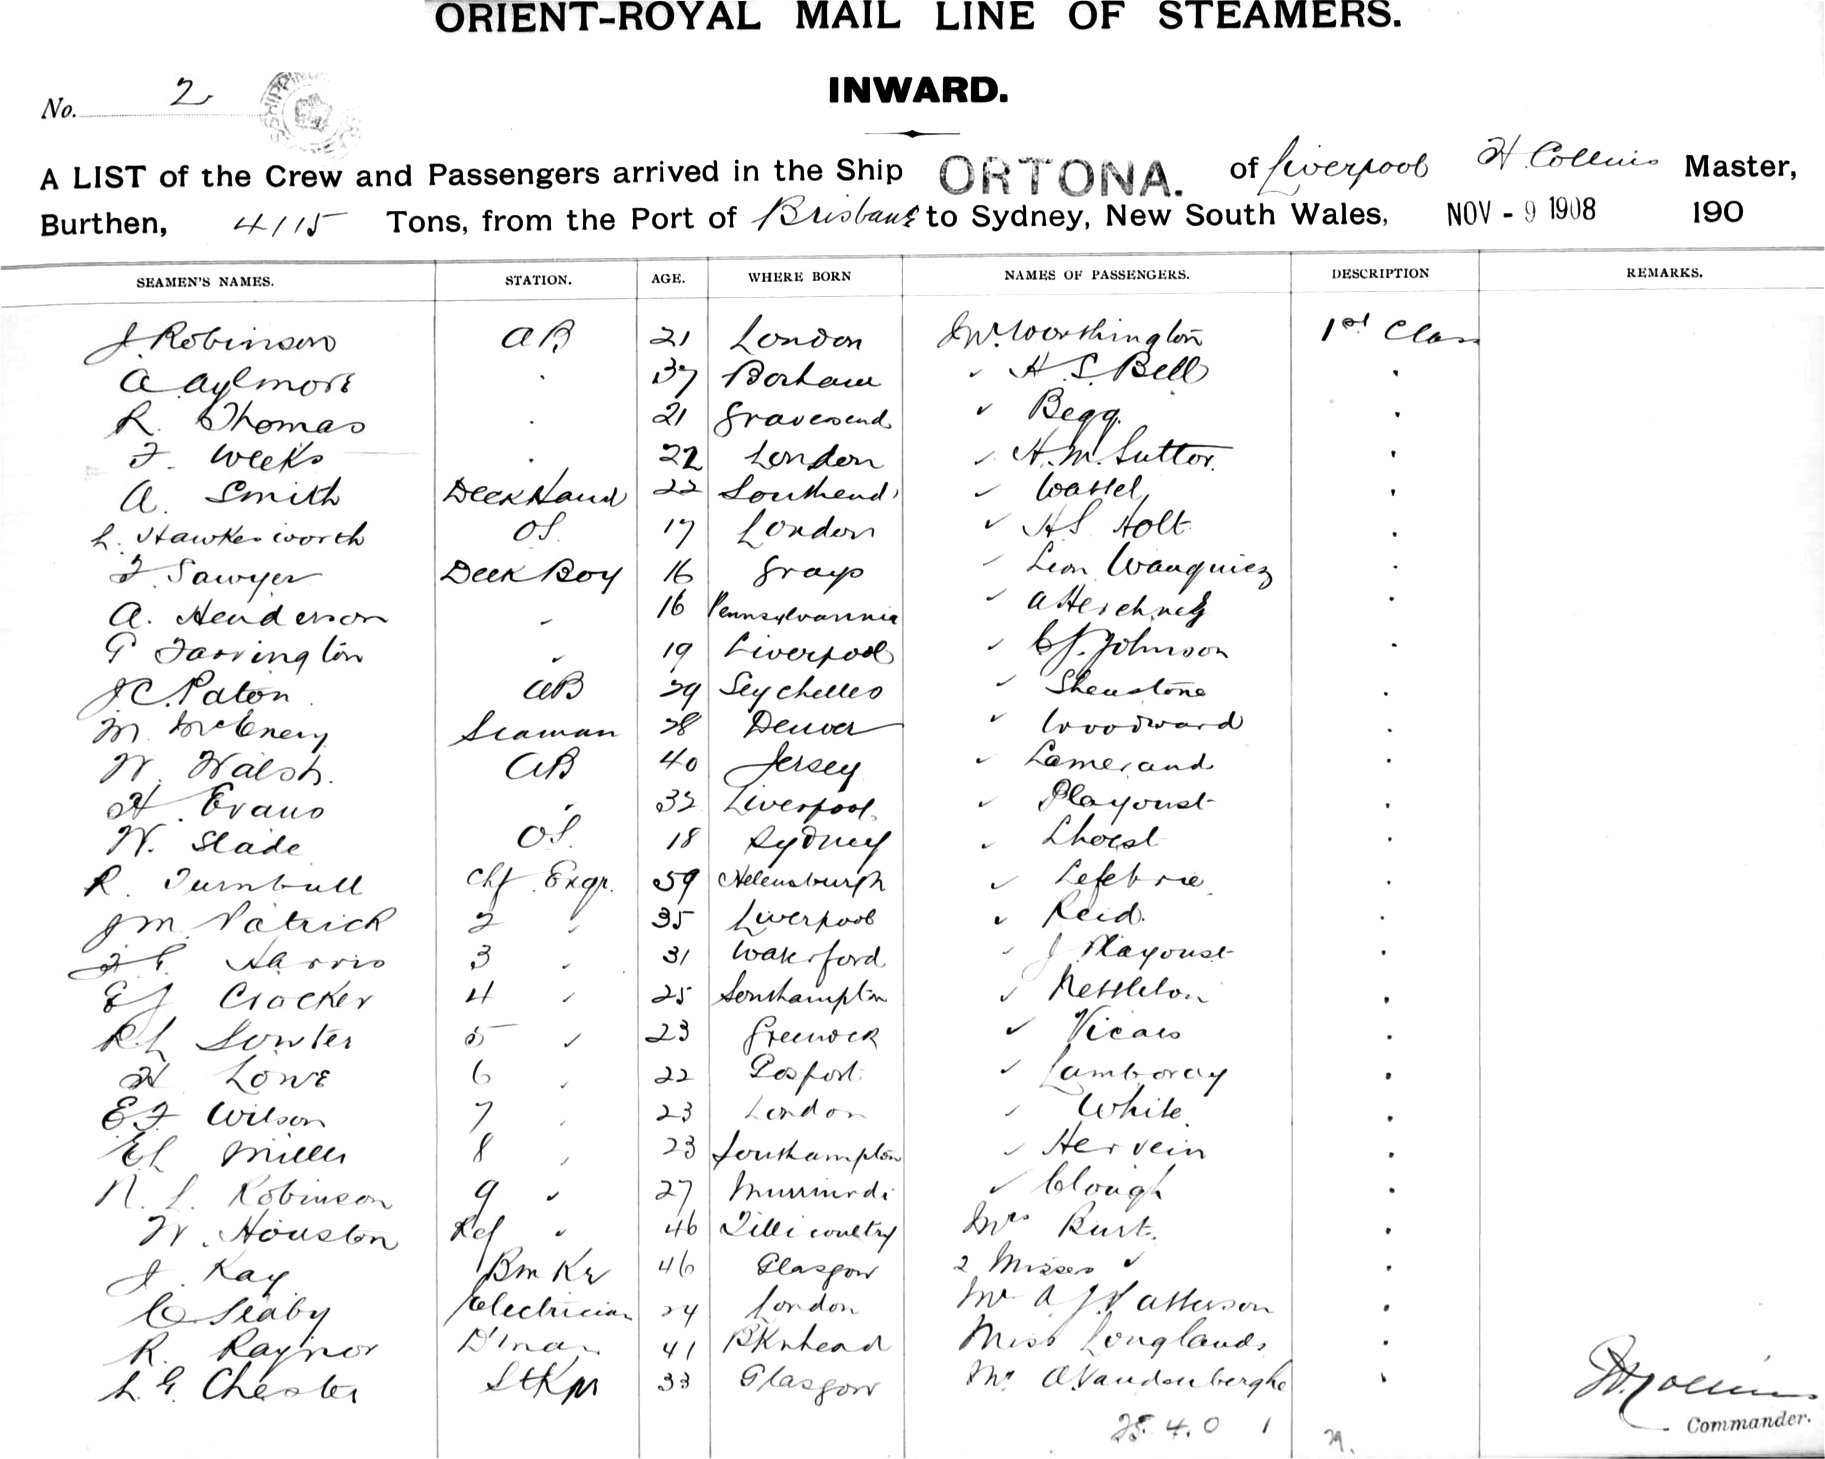 ORIENT-ROYAL MAIL LINE OF STEAMERS.
INWARD.
No. 2
A LIST of the Crew and Passengers arrived in the Ship ORTONA. of Liverpool H Collins Master,
Burthen, 4115 Tons, from the Port of Brisbane to Sydney, New South Wales, NOV - 9 1908 190
SEAMEN'S NAMES. STATION. AGE. WHERE BORN NAMES OF PASSENGERS. DESCRIPTION REMARKS.
J. Robinson AB 21 London Worthington 1st Class
A Aylmore 37 ✓ H. S. Bell
R. Thomas 21 Gravesend ✓ Begg.
F. Weeks 22 London ✓ H. M. Suttor.
A. Smith Deck Hand 22 Southend ✓
L. Hawkesworth OS 17 London ✓ H S Holt
F. Sawyer Deck Boy 16 Grays ✓ Leon Wauquiez
A. Henderson 16 Pennsylvannia
G Farrington ✓ 19 Liverpool ✓ Johnson
J C. Paton AB 29 Seychelles ✓ Shenstone
M. McEnery Seaman 28 Denver ✓ Woodward
W. Walsh. AB 40 Jersey ✓ Lamerand
H. Evans 32 Liverpool. ✓ Playoust
W. Slade OS. 18 Sydney ✓ Lhoest
R. Turnbull Chf Engr. 59 Helensburgh ✓
J M. Patrick 2 35 Liverpool ✓ Reid.
F G. Harris 3 31 Waterford J Playoust
E J Crocker 4 25 Southampton ✓ Nettleton
R L Sowter 5 ✓ 23 Greenock ✓ Vicars
H Lowe 6 22 Gosport ✓ Lamboray
E F Wilson 7 23 London White
E L Miller 8 23 Southampton ✓ Hervein
N. L. Robinson 9 ✓ 27 Murrurdi ✓ Clough
W. Houston Ref 46 Tillicoultry Mrs Burt.
J. Kay Bm Kr 46 Glasgow 2 Misses ✓
C Seaby Electrician 24 London Mr A J Patterson
R. Raynor D'man 41 BKnhead Miss Longlands
L. G. Chester StKpr 33 Glasgow Mr A. Vandenberghe
25. 4. 0 1
29.
H. Collins
Commander.